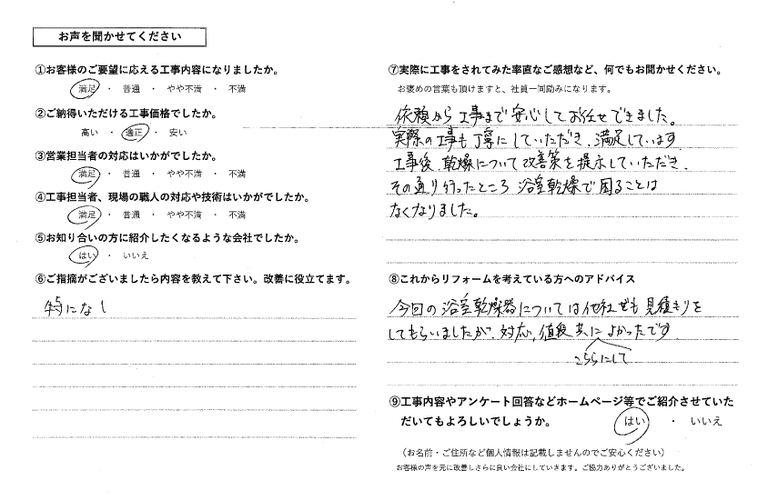 お声を聞かせてください
①お客様のご要望に応える工事内容になりましたか。
満足 ・ 普通 ・ やや不満 ・ 不満
②ご納得いただける工事価格でしたか。
高い ・ 適正 ・ 安い
③営業担当者の対応はいかがでしたか。
満足 ・ 普通 ・ やや不満 ・ 不満
④工事担当者、現場の職人の対応や技術はいかがでしたか。
満足 ・ 普通 ・ やや不満 ・ 不満
⑤お知り合いの方に紹介したくなるような会社でしたか。
はい ・ いいえ
⑥ご指摘がございましたら内容を教えて下さい。改善に役立てます。
特になし
⑦実際に工事をされてみた率直なご感想など、何でもお聞かせください。
お褒めの言葉も頂けますと、社員一同励みになります。
依頼から工事まで安心してお任せできました。
実際の工事も丁寧にしていただき、満足しています
工事後、乾燥について改善策を提示していただき、
その通り行ったところ 浴室乾燥で困ることは
なくなりました。
⑧これからリフォームを考えている方へのアドバイス
今回の浴室乾燥器については他社でも見積もりを
してもらいましたが、対応、値段共によかったです。
こちらにして
⑨工事内容やアンケート回答などホームページ等でご紹介させていた
だいてもよろしいでしょうか。
はい ・ いいえ
（お名前・ご住所など個人情報は記載しませんのでご安心ください）
お客様の声を元に改善しさらに良い会社にしていきます。ご協力ありがとうございました。